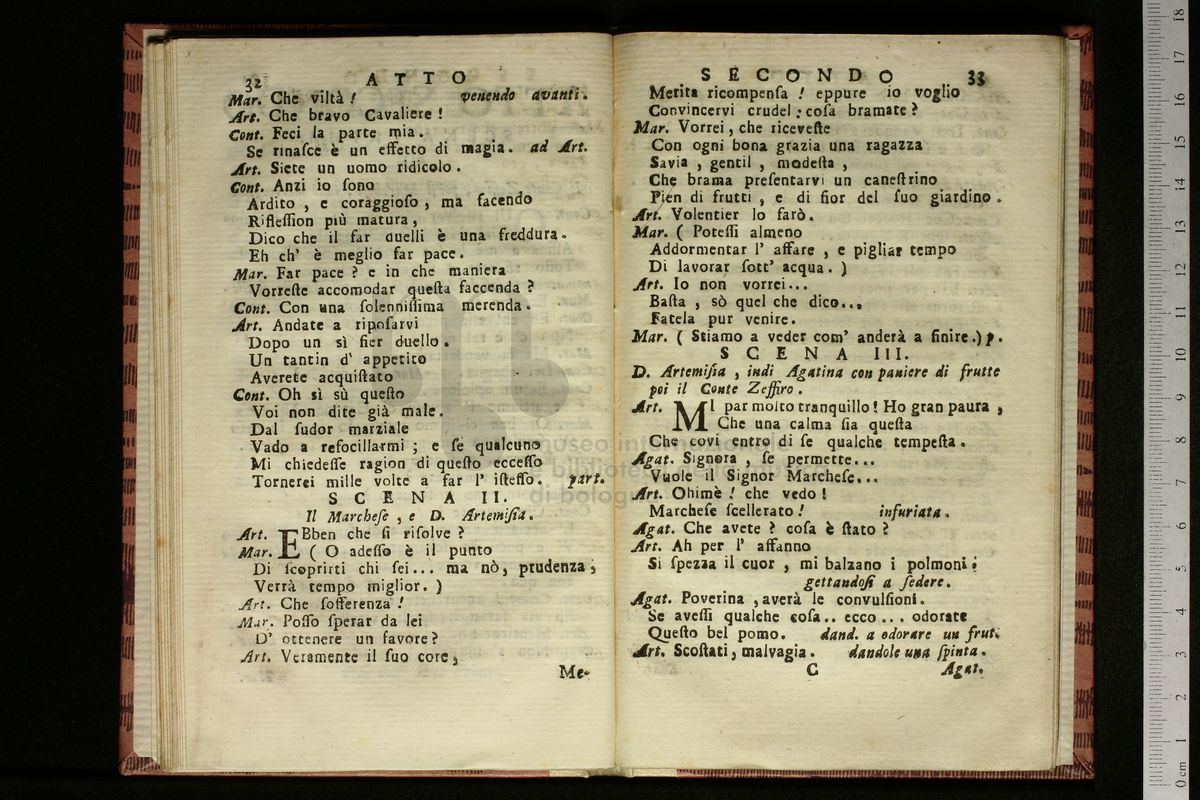 32 ATTO
Mar. Che viltà! venendo avanti.
Art. Che bravo Cavaliere!
Cont. Feci la parte mia.
Se rinaſce è un effetto di magia. ad Art.
Art. Siete un uomo ridicolo.
Cont. Anzi io ſono
Ardito, e coraggioſo, ma facendo
Rifleſſion più matura,
Dico che il far duelli è una freddura.
Eh ch' è meglio far pace.
Mar. Far pace? e in che maniera
Vorreſte accomodar queſta faccenda?
Cont. Con una ſolenniſſima merenda.
Art. Andate a ripoſarvi
Dopo un sì fier duello.
Un tantin d' appetito
Averete acquiſtato
Cont. Oh sì sù queſto
Voi non dite già male.
Dal ſudor marziale
Vado a refocillarmi; e ſe qualcuno
Mi chiedeſſe ragion di queſto ecceſſo
Tornerei mille volte a far l' iſteſſo. part.
SCENA II.
Il Marcheſe, e D. Artemiſia.
Art. EBben che ſi riſolve?
Mar. (O adeſſo è il punto
Di ſcoprirti chi ſei... ma nò, prudenza;
Verrà tempo miglior.)
Art. Che ſofferenza!
Mar. Poſſo ſperar da lei
D' ottenere un favore?
Art. Veramente il ſuo core,
Me-
SECONDO 33
Merita ricompenſa! eppure io voglio
Convincervi crudel: coſa bramate?
Mar. Vorrei, che riceveſte
Con ogni bona grazia una ragazza
Savia, gentil, modeſta,
Che brama preſentarvi un caneſtrino
Pien di frutti, e di fior del ſuo giardino.
Art. Volentier lo farò.
Mar. (Poteſſi almeno
Addormentar l' affare, e pigliar tempo
Di lavorar ſott' acqua.)
Art. Io non vorrei...
Baſta, sò quel che dico...
Fatela pur venire.
Mar. (Stiamo a veder com' anderà a finire.) p.
SCENA III.
D. Artemiſia, indi Agatina con paniere di frutte
poi il Conte Zeffiro.
Art. MI par molto tranquillo! Ho gran paura,
Che una calma ſia queſta
Che covi entro di ſe qualche tempeſta.
Agat. Signora, ſe permette...
Vuole il Signor Marcheſe...
Art. Ohimè! che vedo!
Marcheſe ſcellerato! infuriata.
Agat. Che avete? coſa è ſtato?
Art. Ah per l' affanno
Si ſpezza il cuor, mi balzano i polmoni;
gettandoſi a ſedere.
Agat. Poverina, averà le convulſioni.
Se aveſſi qualche coſa.. ecco... odorate
Queſto bel pomo. dand. a odorare un frut.
Art. Scoſtati, malvagia. dandole una ſpinta.
C Agat.